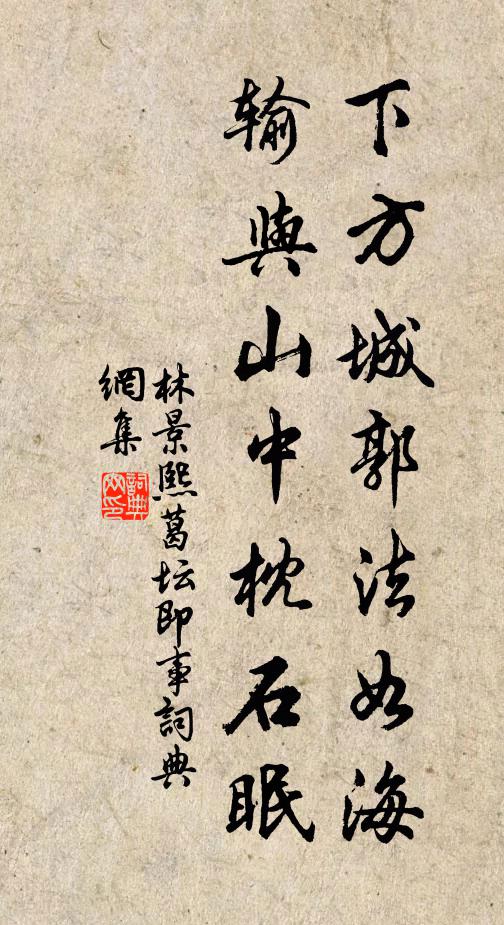 下方城郭法如海
輸與山中枕石眠
林景熙葛坛即事詞典
網集
詞典
网印